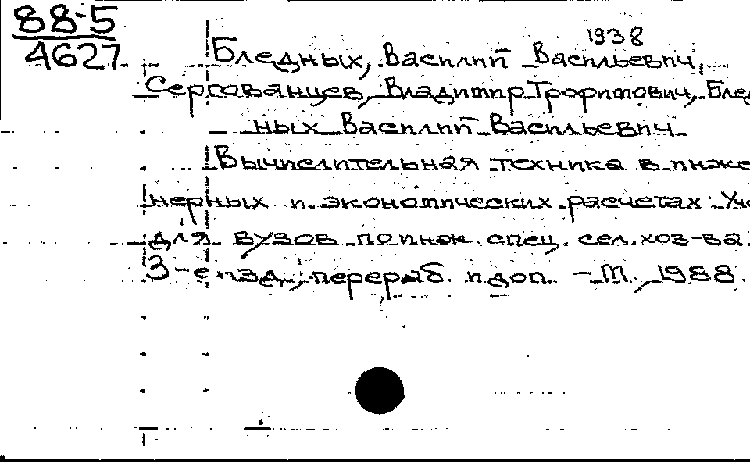 88-5
4627
1938
Бледных, Василий Васильевич,
Серговянцев, Владимир Трофимович, Блед
ных Василий Васильевич
Вычислительная техника в инже
нерных и экономических расчетах: Уч
для вузов по инж. спец. сел. хоз-ва.
3-е изд., перераб. и доп. - М., 1988.